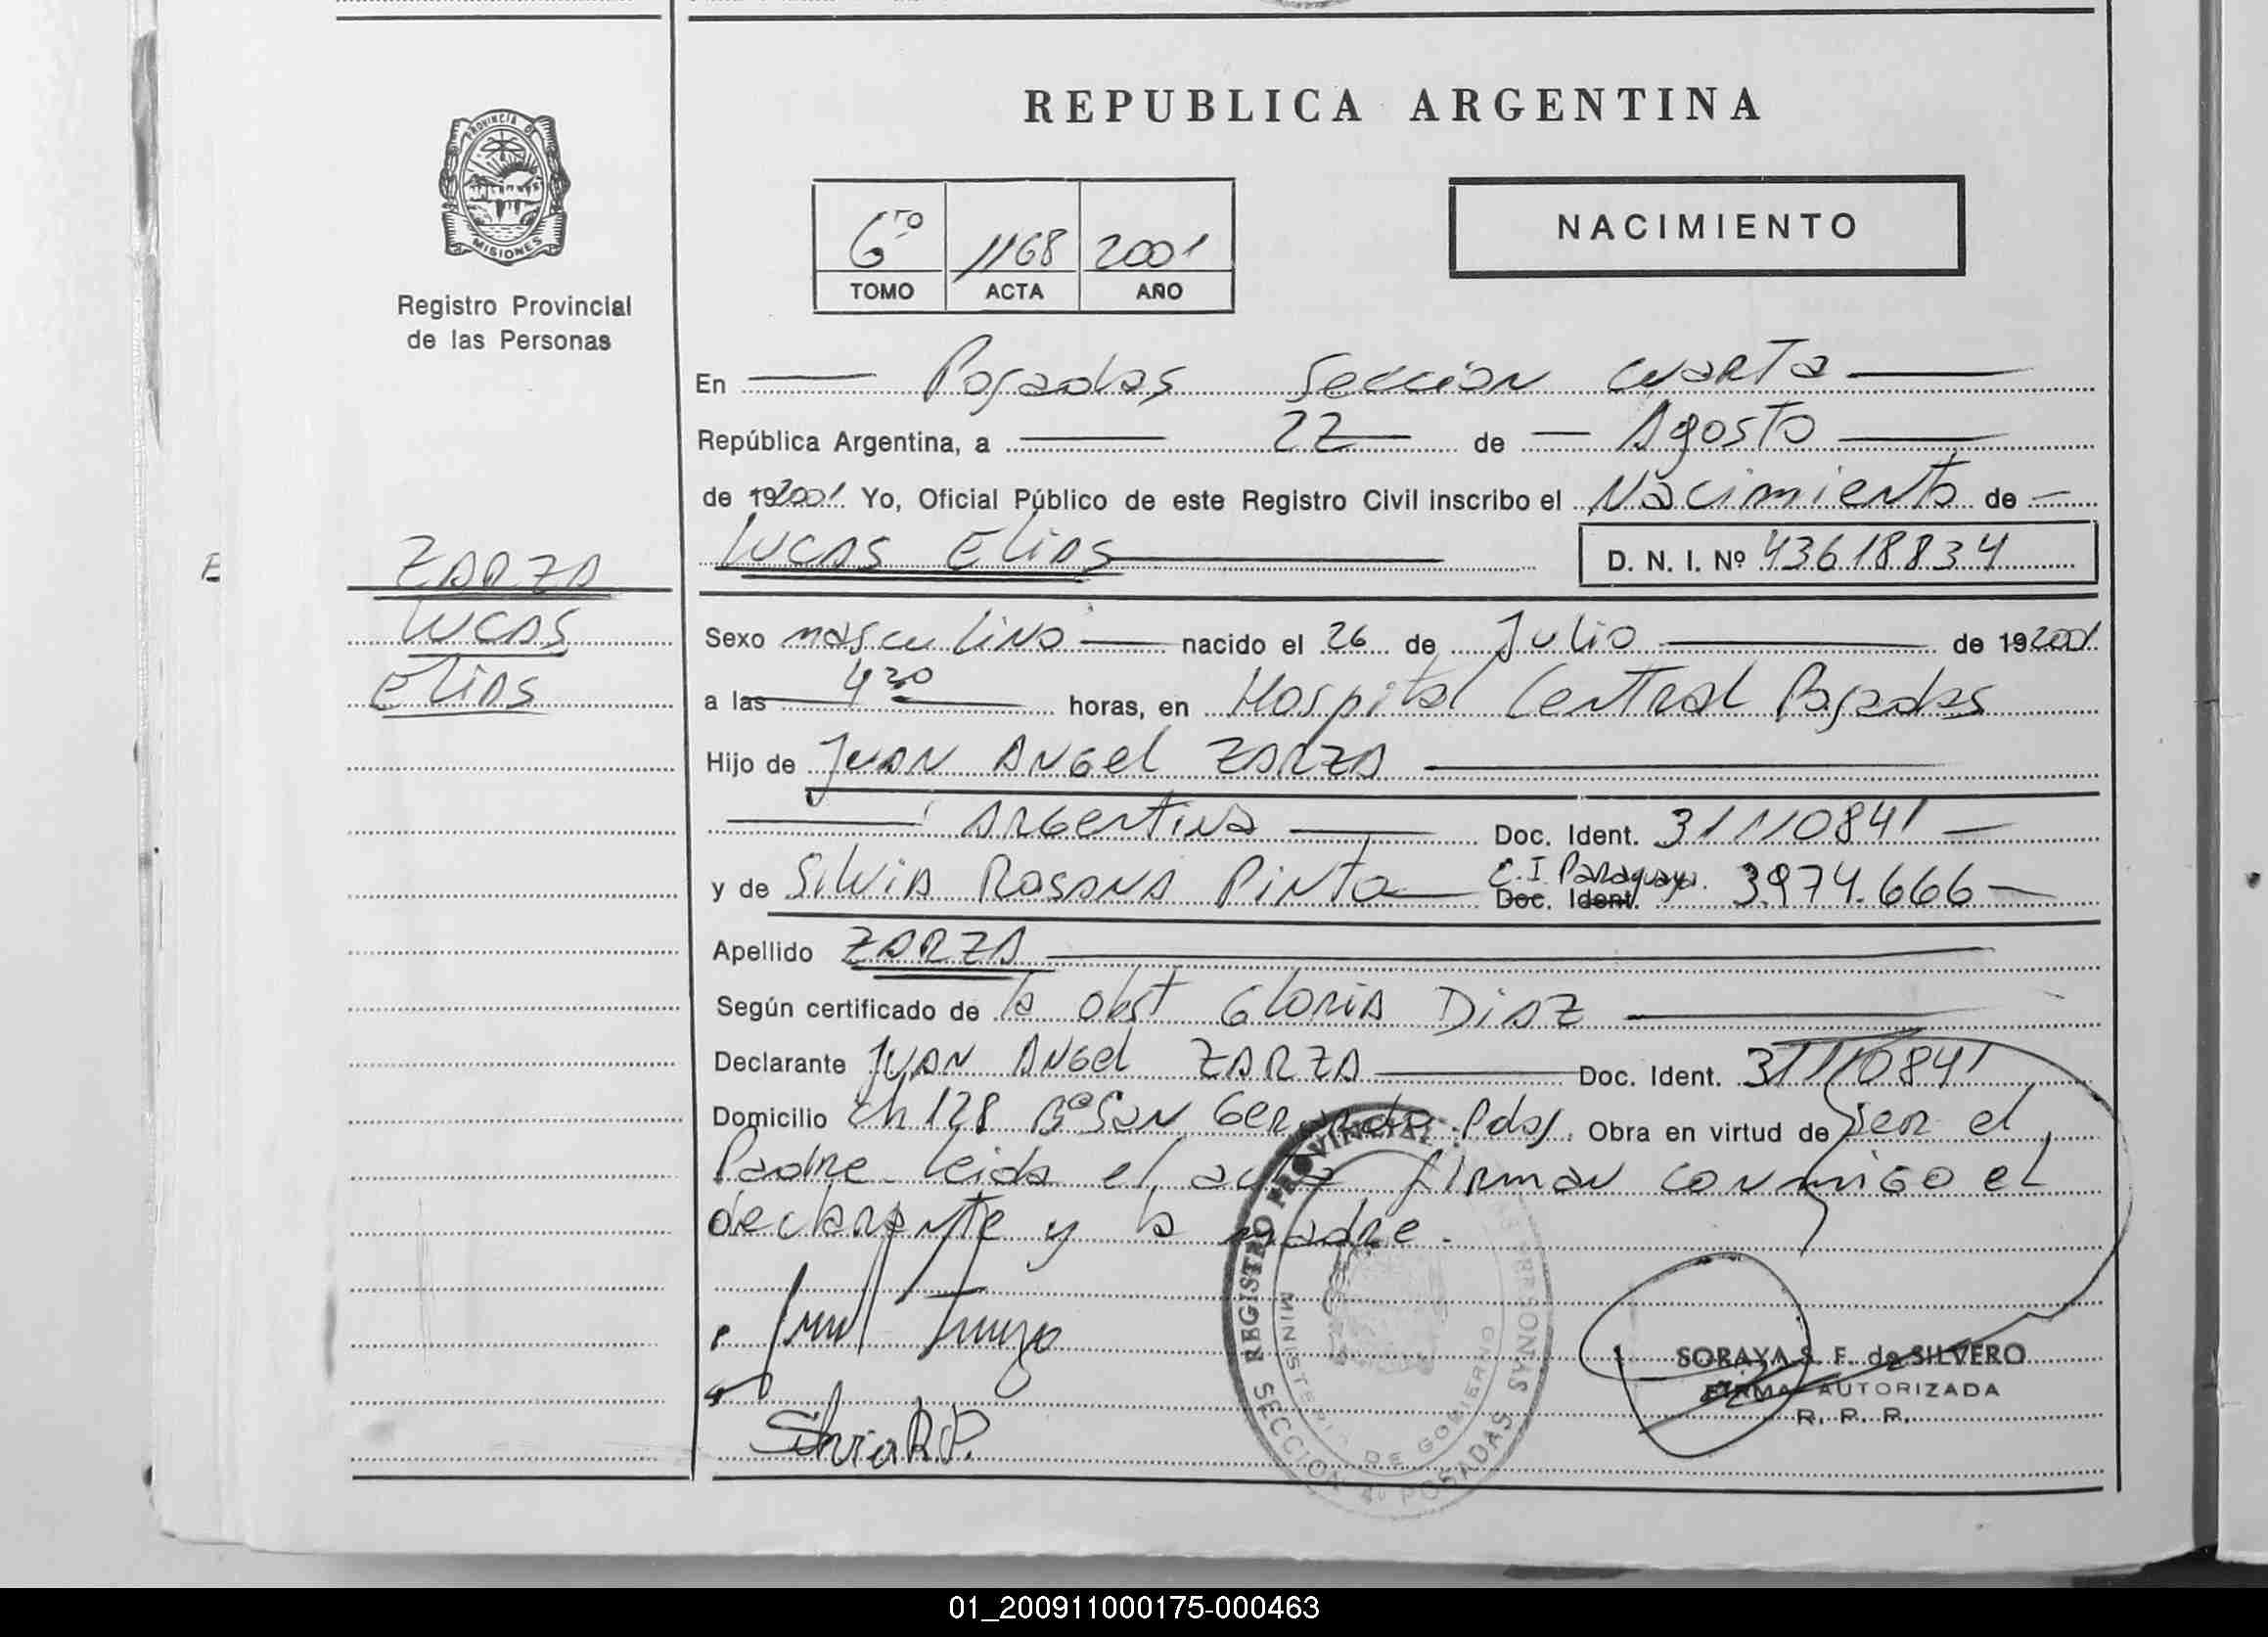 REPUBLICA ARGENTINA
PROVINCIA DE
MISIONES
Registro Provincial
de las Personas
6to 1168 2001
TOMO ACTA AÑO
NACIMIENTO
En Posadas Sección Cuarta
República Argentina, a 22 de Agosto
de 192001. Yo, Oficial Público de este Registro Civil inscribo el Nacimiento de
Lucas Elias D. N. I. Nº 43618834
ZARZA
Lucas
Elias
Sexo masculino nacido el 26 de Julio de 192001
a las 4 30 horas, en Hospital Central Posadas
Hijo de Juan Angel ZARZA
Argentina Doc. Ident. 31110841
y de Silvia Rosana Pinto C.I Paraguaya Doc. Ident. 3.974.666
Apellido ZARZA
Según certificado de la obst Gloria Diaz
Declarante Juan Angel ZARZA Doc. Ident. 31110841
Domicilio Ch 128 Bº San Gerardo Pdas. Obra en virtud de ser el
Padre leida el acta firman conmigo el
declarante y la madre.
Silvia R.P.
REGISTRO PROVINCIAL DE LAS PERSONAS
MINISTERIO DE GOBIERNO
SECCION 4º POSADAS
SORAYA S. F. de SILVERO
FIRMA AUTORIZADA
R. P. P.
01_200911000175-000463